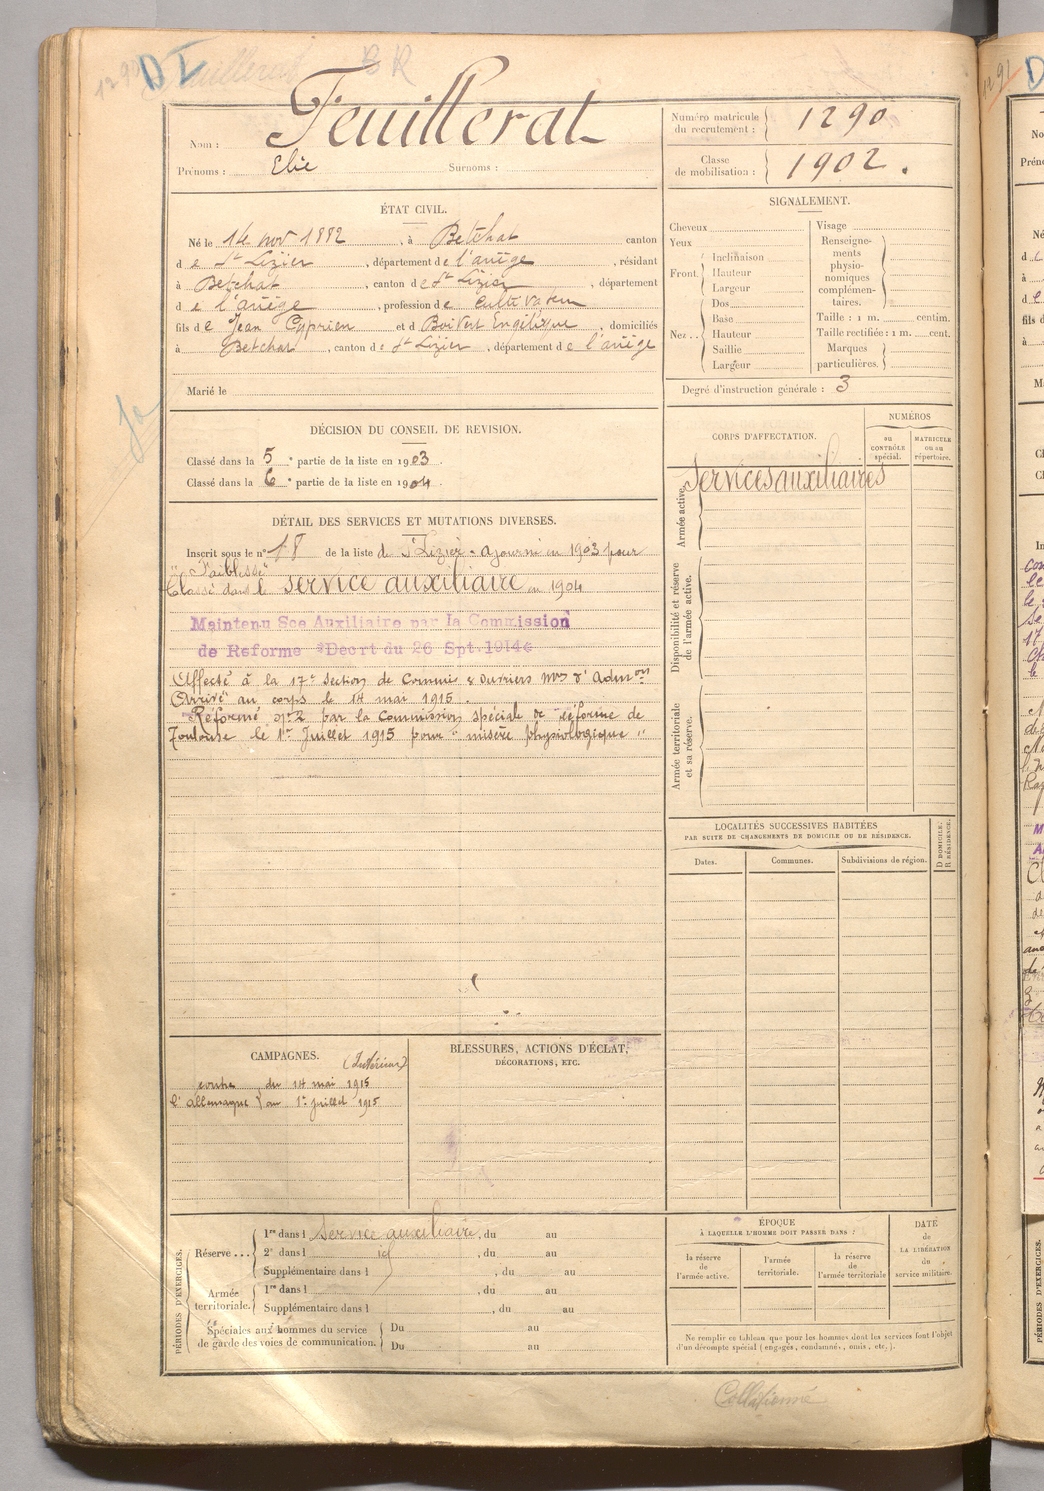 1290 DI Feuillerat BR
Nom : Feuillerat
Prénoms : Elie Surnoms :
Numéro matricule du recrutement : 1290
Classe de mobilisation : 1902.
ÉTAT CIVIL.
Né le 14 nov 1882, à Betchat canton
de St Lizier, département de l'ariège, résidant
à Betchat, canton de St Lizier, département
de l'ariège, profession de cultivateur
fils de Jean Cyprien et d Boivert Engélique, domiciliés
à Betchat, canton de St Lizier, département de l'ariège
Marié le
SIGNALEMENT.
Cheveux
Yeux
Front
Inclinaison
Hauteur
Largeur
Nez
Dos
Base
Hauteur
Saillie
Largeur
Visage
Renseigne-
ments
physio-
nomiques
complémen-
taires.
Taille : 1 m. centim.
Taille rectifiée : 1 m. cent.
Marques
particulières.
Degré d'instruction générale : 3
DÉCISION DU CONSEIL DE REVISION.
Classé dans la 5e partie de la liste en 1903.
Classé dans la 6e partie de la liste en 1904.
DÉTAIL DES SERVICES ET MUTATIONS DIVERSES.
Inscrit sous le n° 18 de la liste de St Lizier. ajourné en 1903 pour
"Faiblesse"
Classé dans le service auxiliaire en 1904
Maintenu Sce Auxiliaire par la Commission
de Reforme Decrt du 26 Spt. 1914
Affecté à la 17e Section de Commis & Ouvriers Mres d'Admon
Arrivé au corps le 14 mai 1915.
Réformé n°2 par la Commission spéciale de réforme de
Toulouse le 1er Juillet 1915 pour "misère physiologique"
CORPS D'AFFECTATION.
NUMÉROS
au
CONTRÔLE
spécial.
MATRICULE
ou au
répertoire.
Services auxiliaires
Armée active.
Disponibilité et réserve
de l'armée active.
Armée territoriale
et sa réserve.
LOCALITÉS SUCCESSIVES HABITÉES
PAR SUITE DE CHANGEMENTS DE DOMICILE OU DE RÉSIDENCE.
D DOMICILE.
R RÉSIDENCE.
Dates. Communes. Subdivisions de région.
CAMPAGNES.
(Intérieur)
contre du 14 mai 1915
l'allemagne au 1er Juillet 1915
BLESSURES, ACTIONS D'ÉCLAT,
DÉCORATIONS, ETC.
PÉRIODES D'EXERCICES.
Réserve...
1re dans l service auxiliaire, du au
2e dans l id, du au
Supplémentaire dans l , du au
Armée
territoriale.
1re dans l , du au
Supplémentaire dans l , du au
Spéciales aux hommes du service
de garde des voies de communication.
Du au
Du au
ÉPOQUE
À LAQUELLE L'HOMME DOIT PASSER DANS :
la réserve
de
l'armée active.
l'armée
territoriale.
la réserve
de
l'armée territoriale
DATE
de
LA LIBÉRATION
du
service militaire.
Ne remplir ce tableau que pour les hommes dont les services font l'objet
d'un décompte spécial (engagés, condamnés, omis, etc.).
Collationné